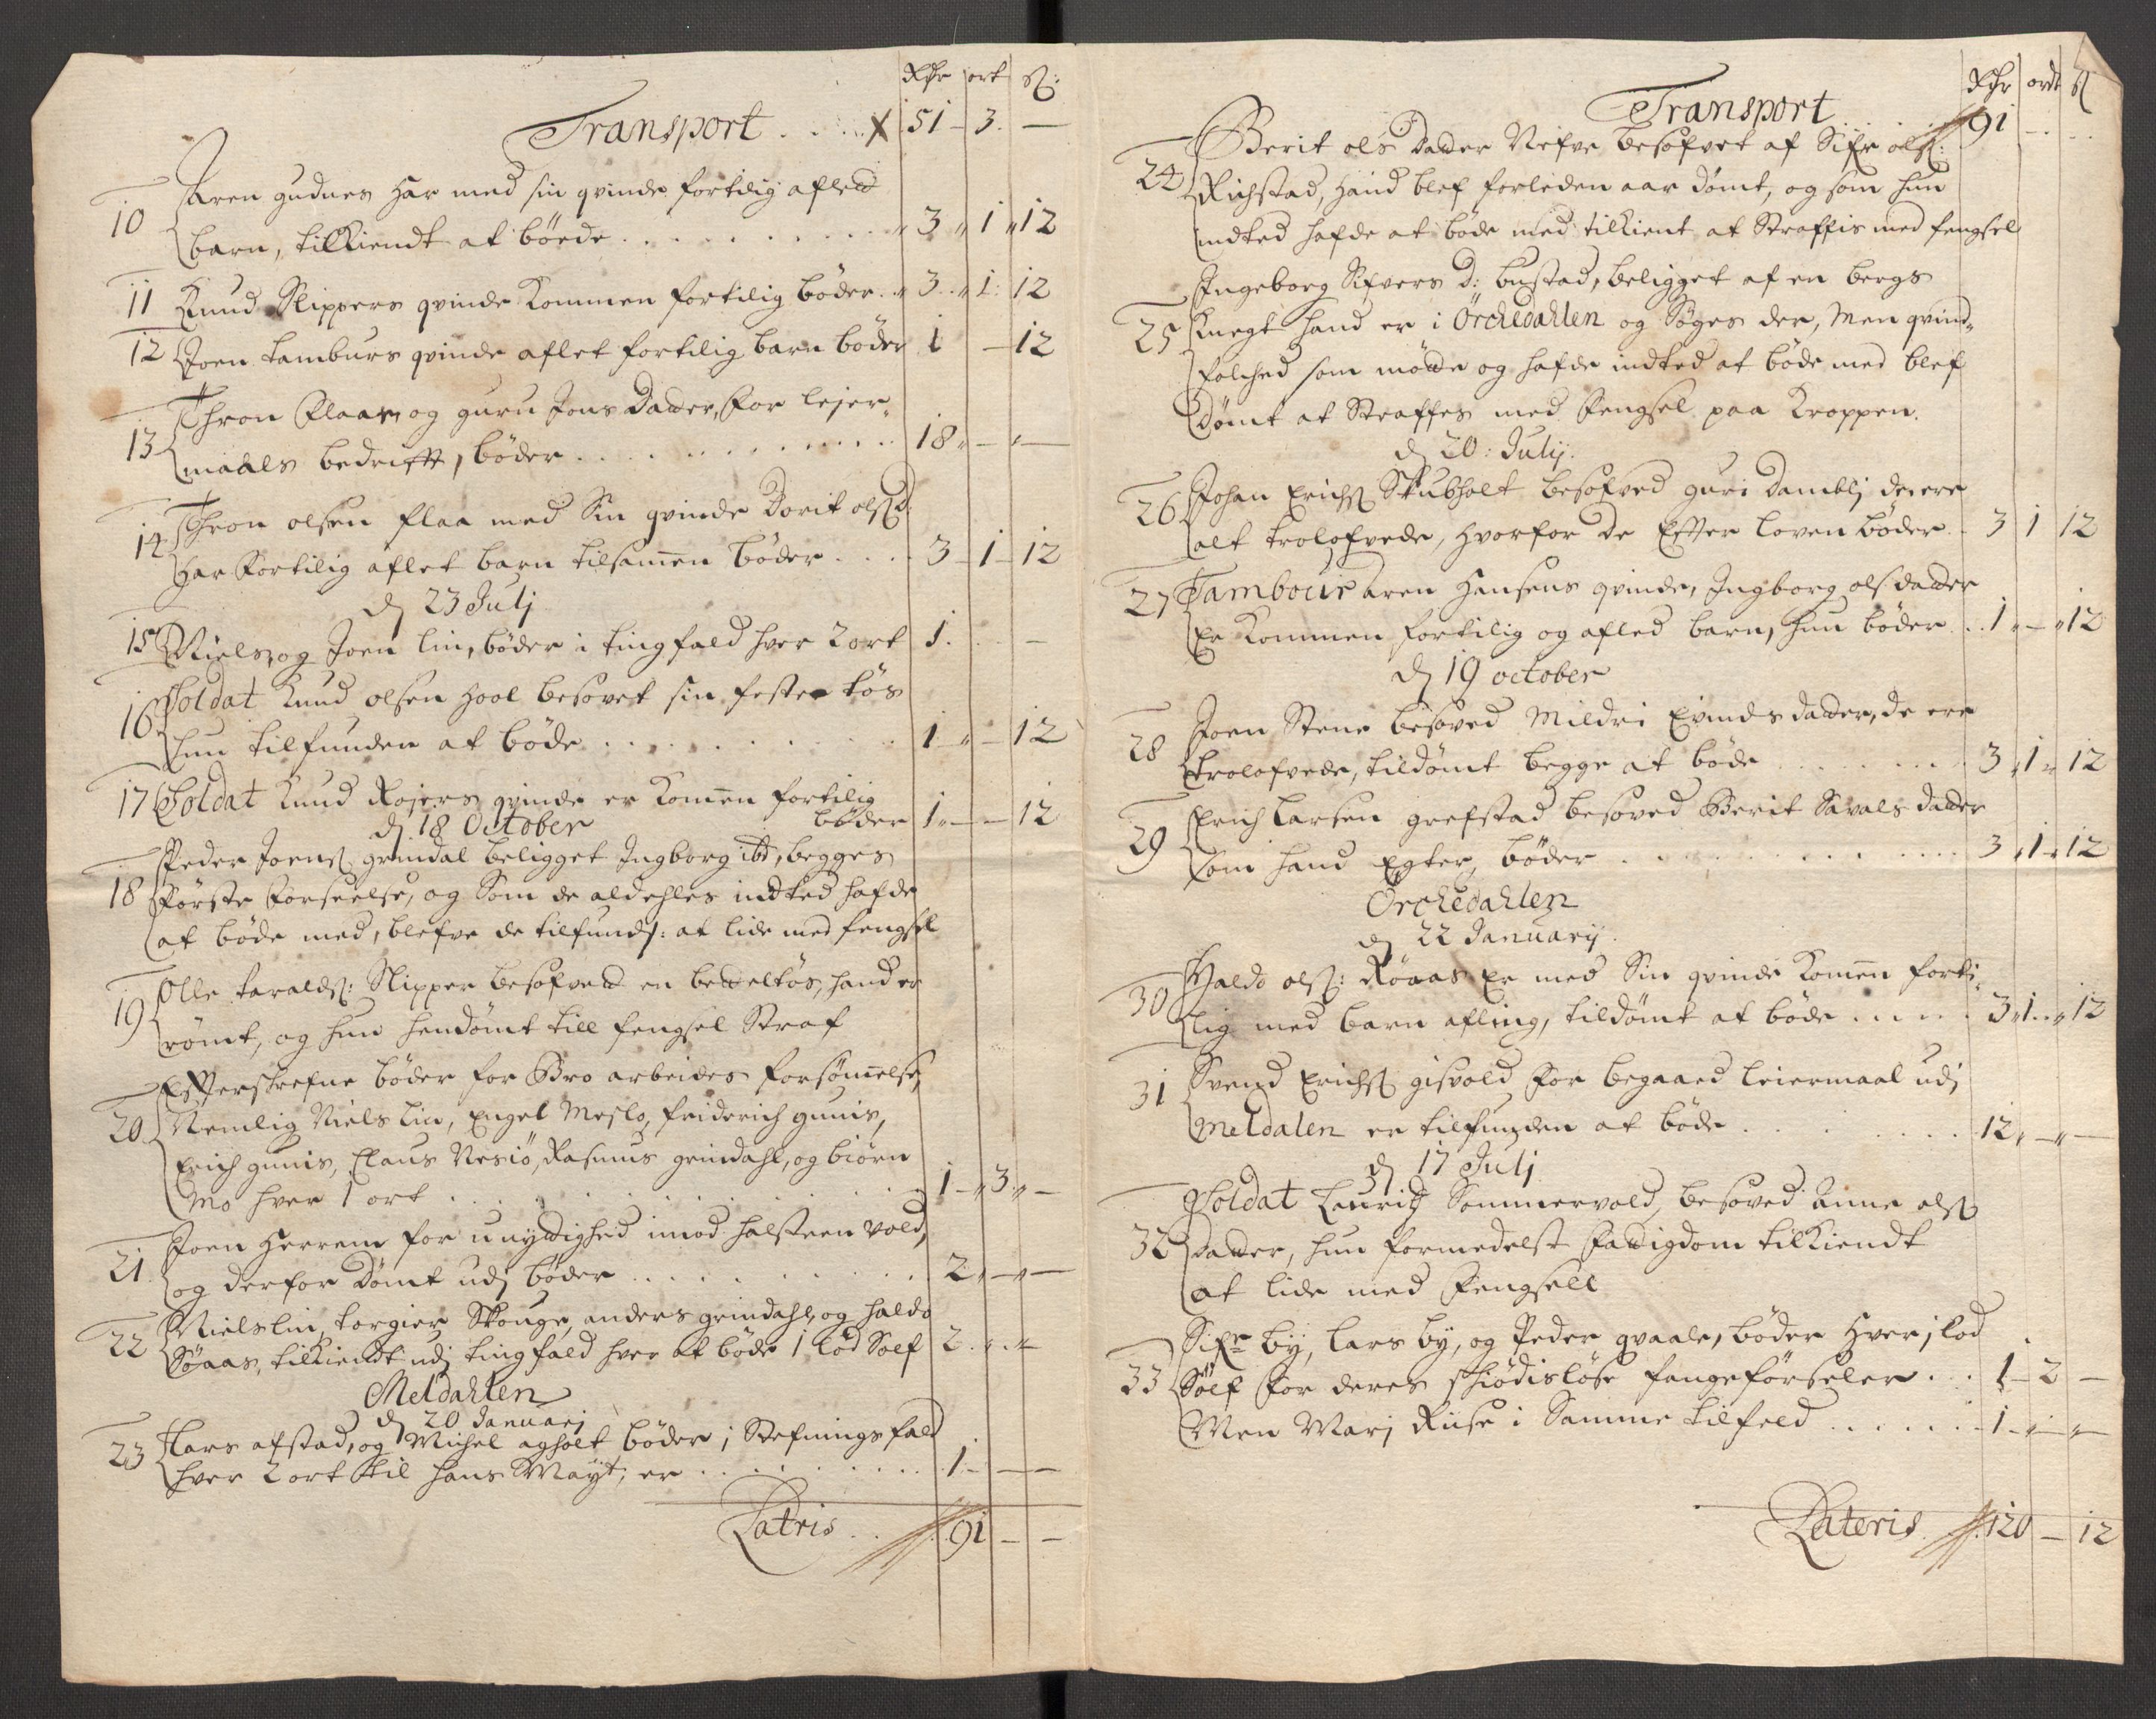 Rdr ort ß:
Transport . . . . X 51 - 3. -
10 Aren gudnes har med sin qvinde fortilig afled
barn, tilkiendt at böede . . . . . . . . . . 3 „ 1 „ 12
11 Knud Slippers qvinde kommen fortilig böder . . 3 . „ 1 : 12
12 Joen tamburs qvinde aflet fortilig barn böder 1 - 12
13 Thron Flaae, og guru Jons Datter, for lejer„
maals bedrifft, böder . . . . . . . . . . 18 „ - „ -
14 Thron olsen flaa med Sin qvinde Dorit olsd:
har fortilig aflet barn tilsamen böder . . . . 3 - 1 - 12
d 23 Julj
15 Niels, og Joen lin, böder i tingfald hver 2 ort 1. . -
16. Soldat Knud olsen Hool besovet sin feste tös
hun tilfunden at böde . . . . . . . . . . 1 - „ - 12
17 Soldat Knud Rojers qvinde er komen fortilig
böder 1 „ - - 12
d. 18 October
18 Peder Joens: grindal beligget Ingborg ibd, begges
förste forseelse, og Som de aldehles indted hafde
at böde med, blefve de tilfunds: at lide med fengsel
19 Olle taralds: Slipper besofved en betteltös, hand er
römt, og hun hendömt till fengsel Straf
20. Effterschrefne böder for Bro arbeides forsömelse,
Nemlig Niels Lin, Engel Meslo, friderich gunis,
Erich gunis, Claus Nesiö, Rasmus grindahl, og biörn
Mo hver 1 ort . . . . . . . . . . 1 - „ 3 „ -
21. Joen Herrem for unydighed imod halsteen vold,
og derfor dömt udj böder . . . . . . . . 2 „ - „ -
22 Niels lin, torgier Skouge, anders grindahl, og haldo
Söaas, tilkiendt udj tingfald hver at böde 1 lod Sölf 2 . „ . „
Meldahlen
d 20 Januarj
23 Lars afstad, og Michel agholt böder j Stefnings fald
hver 2 ort til hans Mayt, er . . . . . . . . 1 - - -
Latris . . 91 - -
Rdr ordt ß
Transport . . . . 91 - . . .
24 Berit ols Datter Refve besofvet af Sifr ols:
Richstad, hand blef forleden aar dömt, og som hun
indted hafde at böde med tilkient at Straffis med fengsel
25 Ingeborg Sifvers D: bustad, beligget af en bergs
knegt hand er i Örchedahlen og Söges der, Men qvind„
folched som mötte og hafde indted at böde med blef
dömt at Straffes med Fengsel paa kroppen.
d 20: Julij.
26 Johan Erichs: Skubholt besofved guri Damblj de ere
alt trolofvede, hvorfor de Effter loven böder . 3 1 12
27 Tambour Aren Hansens qvinde, Ingborg olsdatter
Er kommen fortilig og afled barn, hun böder . . 1 „ - „ 12
d 19 october
28 Joen Stene besoved Mildri Eindsdatter, de ere
trolofvede, tildömt begge at böde . . . . . . . 3 „ 1 „ 12
29 Erich Larsen grefstad besoved Berit Savals datter
som hand Egter, böder . . . . . . . . . . 3 „ 1 „ 12
Örchedahlen
d 22 Januarij.
30 Haldo ols: Röaas Er med Sin qvinde komen forti„
lig med barn afling, tildömt at böde . . . . . 3 „ 1 . . „ 12
31 Svend Erichs: gisvold for begaaed leiermaal udj
Meldalen er tilfunden at böde . . . . . . . . 12 „ - „ -
d 17 Julj
32 Soldat Lauritz Sommervold, besoved Anne ols:
Datter, hun formedelst fattigdom tilkiendt
at lide med Fengsell
33 Sifr by, Lars by, og Peder qvaale, böder hver j lod
Sölf for deres skiödislöse fangeförseler . . . 1 - 2 -
Men Marj Riise i Samme tilfeld . . . . . . 1 - „ - „ -
Lateris . 120 - 12